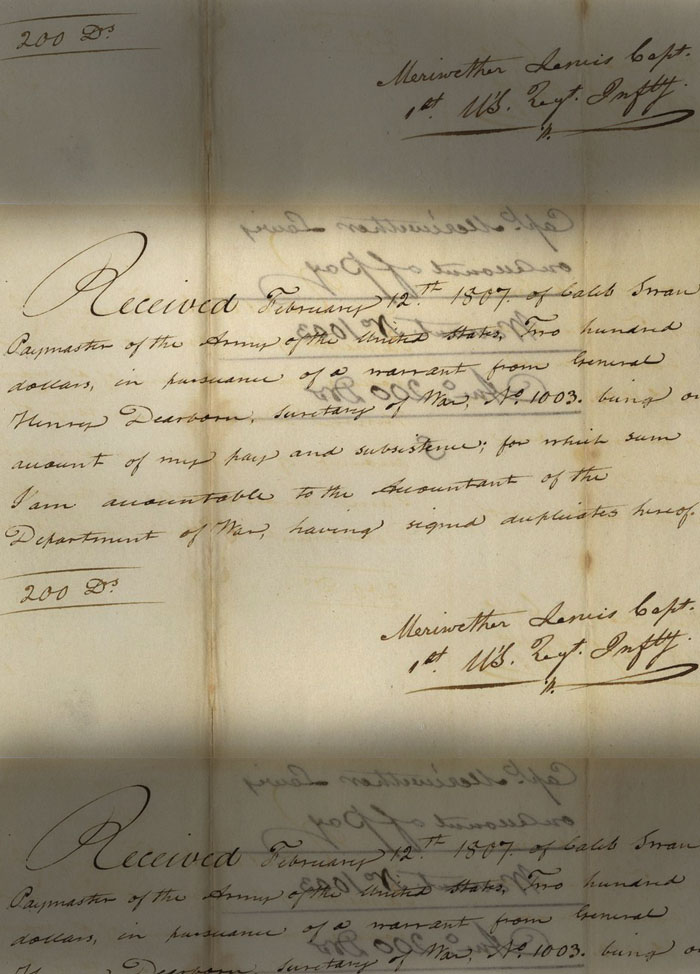 200 Ds
Meriwether Lewis Capt.
1st US. Regt. Infty.
Capt. Meriwether Lewis
on account of pay
Received February 12th 1807. of Caleb Swan
Warrt. No. 1003
Paymaster of the Army of the United States, Two hundred
dollars, in pursuance of a warrant from General
200 Drs
Henry Dearborn, secretary of War, No. 1003. being on
account of my pay and subsistence; for which sum
I am accountable to the Accountant of the
Department of War, having signed duplicates hereof.
200 Ds
Meriwether Lewis Capt.
1st US. Regt. Infty.
Capt. Meriwether Lewis
on account of pay
Received February 12th 1807. of Caleb Swan
Warrt. No. 1003
Paymaster of the Army of the United States, Two hundred
dollars, in pursuance of a warrant from General
200 Drs
Henry Dearborn, secretary of War, No. 1003. being on